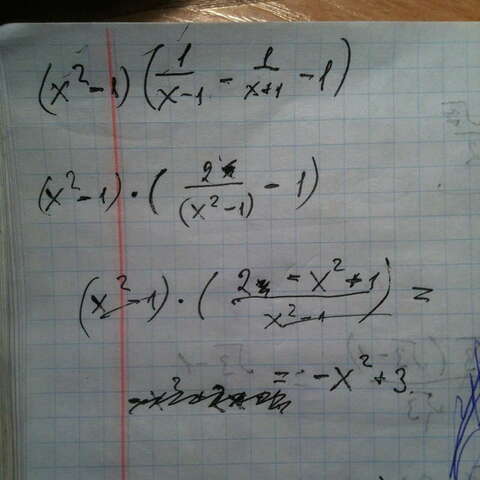 (x²-1)(1/(x-1) - 1/(x+1) - 1)
(x²-1)·(2/(x²-1) - 1)
(x²-1)·((2 - x²+1)/(x²-1)) =
= -x²+3